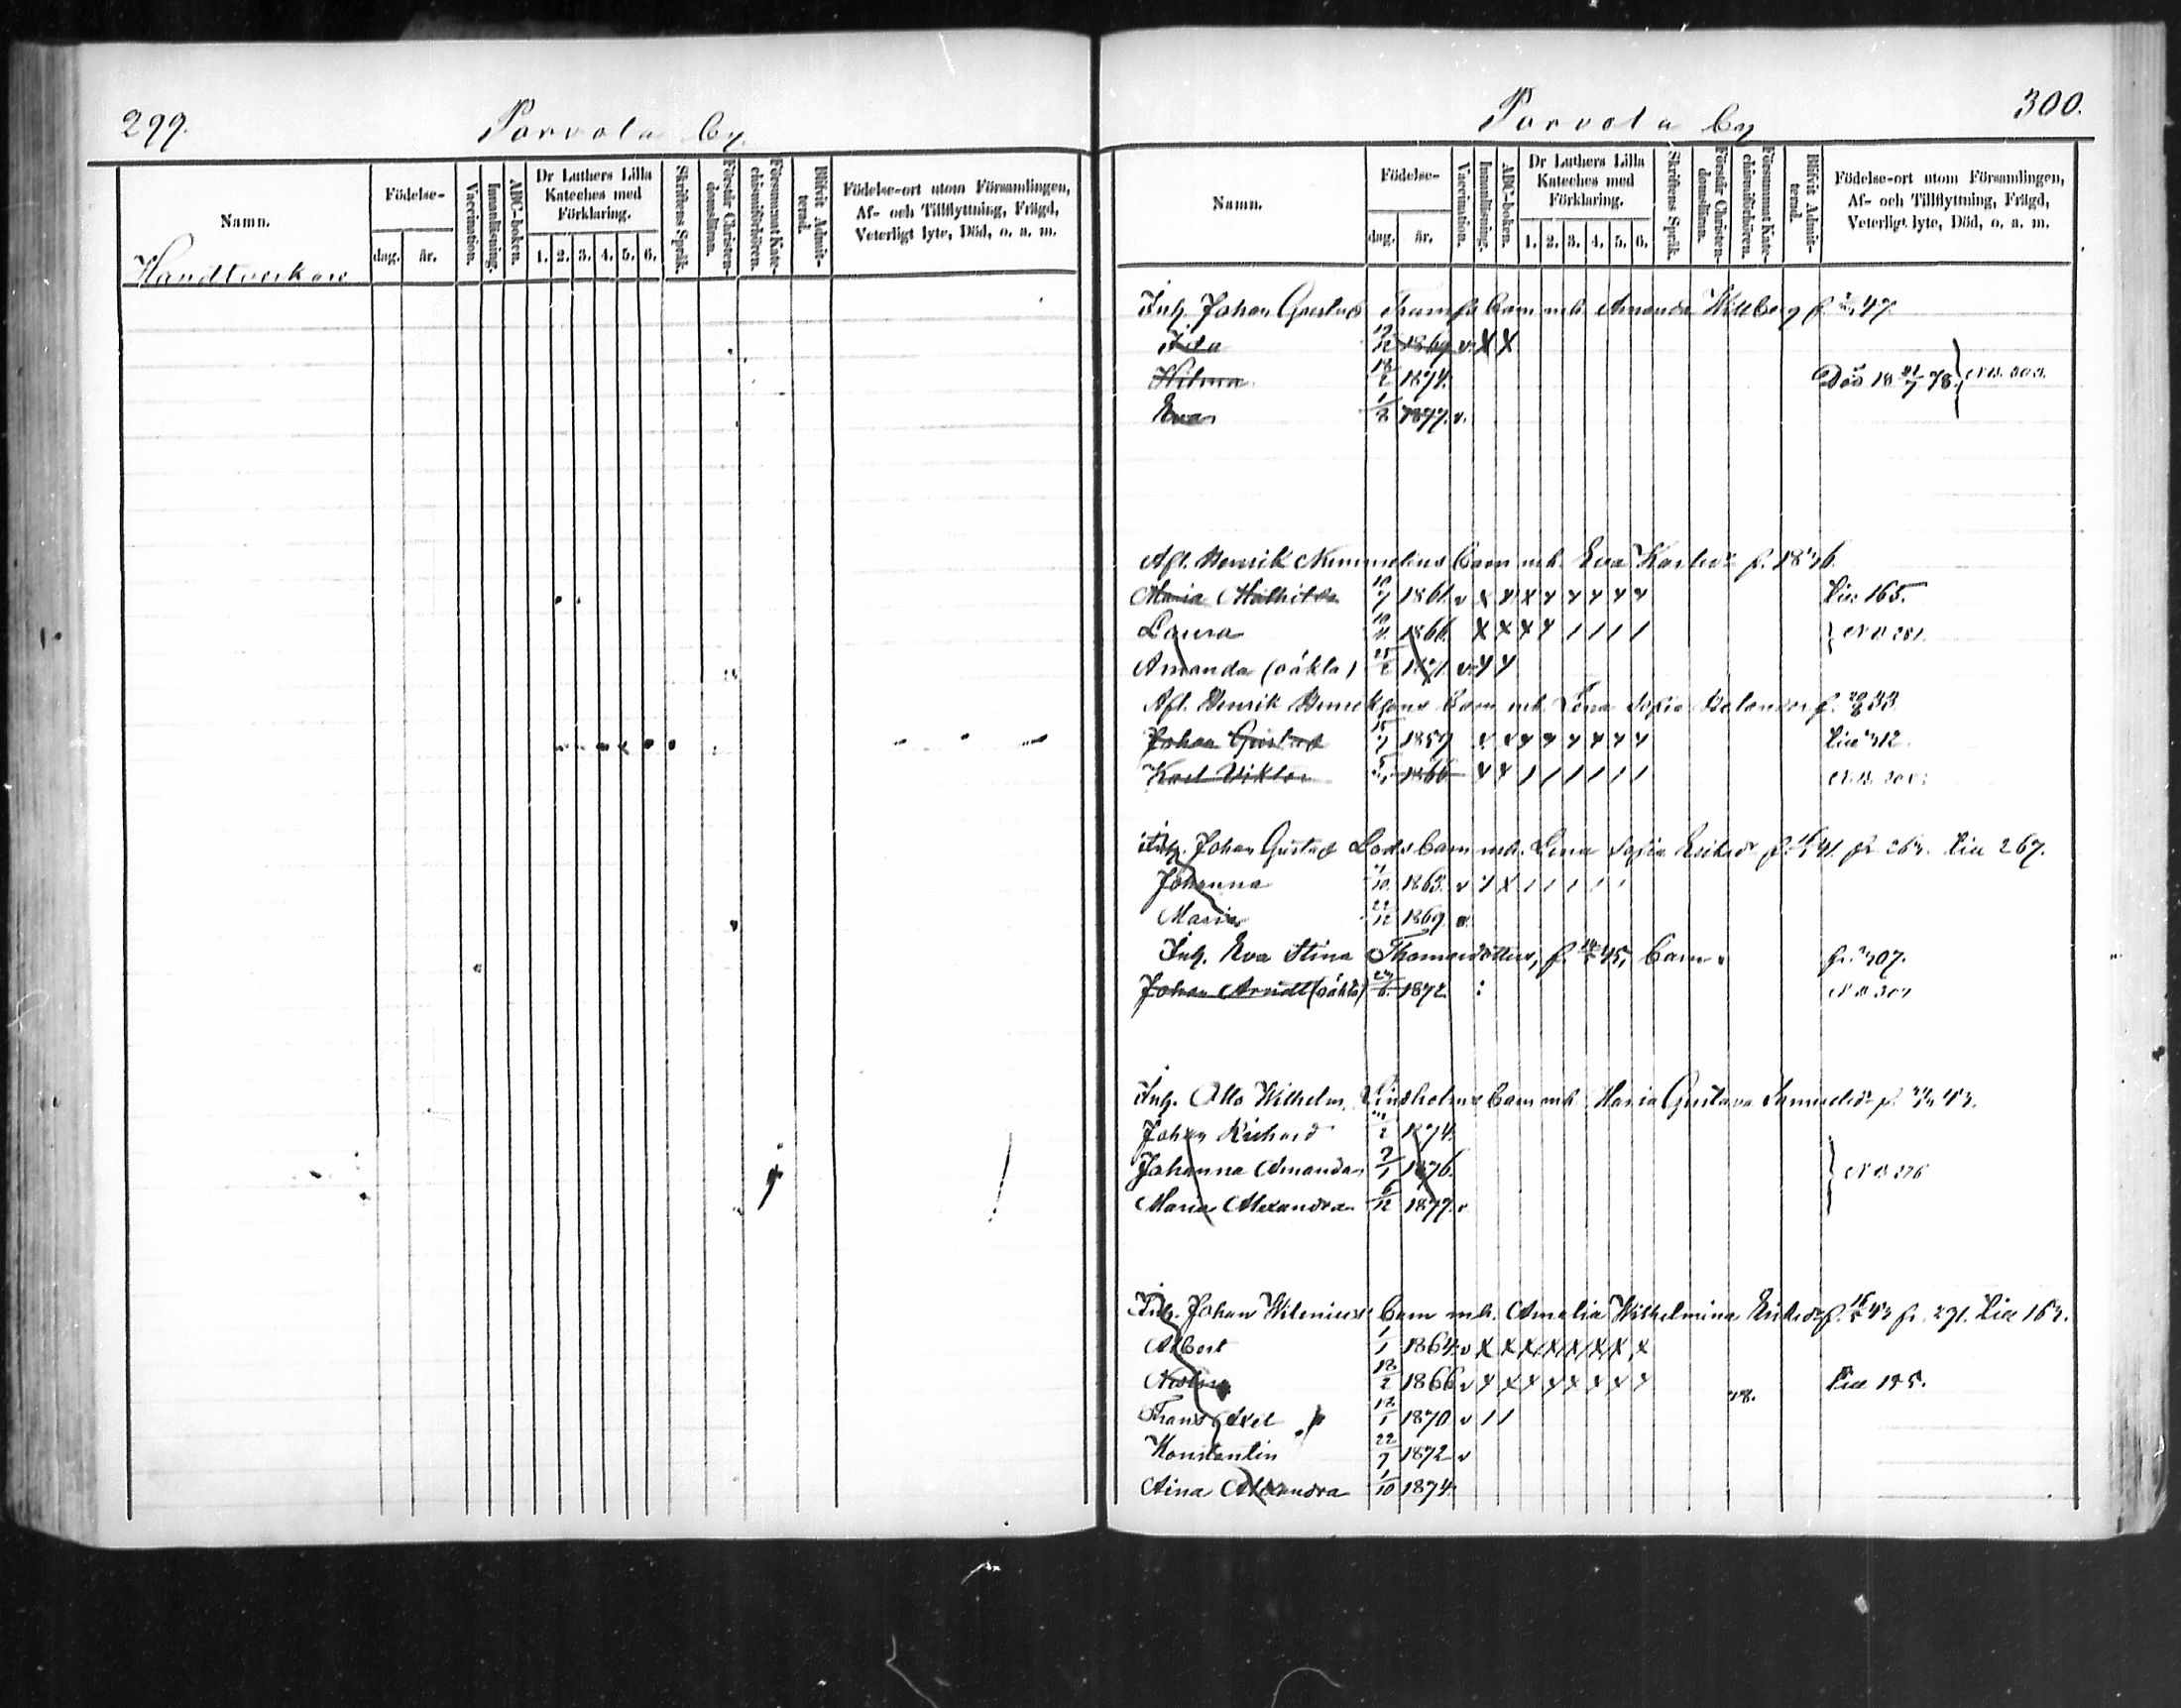 299.
Porvola by.
Namn.
Födelse-
dag. år.
Vaccination.
Innanläsning.
ABC-boken.
Dr Luthers Lilla Kateches med Förklaring.
1. 2. 3. 4. 5. 6.
Skriftens Språk.
Förstår Christen-domsläran.
Försummat Kate-chismiförhören.
Blifvit Admit-terad.
Födelse-ort utom Församlingen, Af- och Tillflyttning, Frägd, Veterligt lyte, Död, o. a. m.
Handtverkare
300.
Porvola by
Namn.
Födelse-
dag. år.
Vaccination.
Innanläsning.
ABC-boken.
Dr Luthers Lilla Kateches med Förklaring.
1. 2. 3. 4. 5. 6.
Skriftens Språk.
Förstår Christen-domsläran.
Försummat Kate-chismiförhören.
Blifvit Admit-terad.
Födelse-ort utom Församlingen, Af- och Tillflyttning, Frägd, Veterligt lyte, Död, o. a. m.
Inh. Johan Gustaf barn mh. Amanda Willberg f. 47.
Ida 19/12 1869 v X X
Hilma 18/2 1874. Död 18 21/7 78. N.B. 303.
Eva 1/2 1877. v.
Afl. Henrik Nummelins barn mh. Eva Karlsdr f. 1836.
Maria Mathilda 10/7 1861. v x x x x x x x x Vid 165.
Laura 1866. X X X X / / / / N.B. 281.
Amanda (oäkta) 25/2 1871. v
Afl. Henrik Henrikssons barn mh. Lena Sofia f. 33.
Johan Gustaf 15/7 1857 Vid 312.
Karl Viktor 1866 N.B.
Inh. Johan Gustaf barn mh. Lena Sofia Eriksdr f. 41. fr. Vid 267.
Johanna /10 1863. v x x / / / / /
Maria 22/12 1869. v
Inh. Eva Stina Thomasdotters, f. 45, barn. fr. 307.
Johan Arvid (oäkta) 1872. N.B. 307
Inh. Otto Wilhelm Lindholms barn mh. Maria Gustava Samuelsdr f. 43.
Johan Richard /2 1874.
Johanna Amanda 7/1 1876. N.B. 276
Maria Alexandra 6/12 1877. v
Inh. Johan Wilenius barn mh. Amalia Wilhelmina Eriksdr f. 43 fr. 271. Vid 163.
Albert 1/1 1864. v X X X X X X X X
18/2 1866 v x x x x x x x x Vid 185.
Frans Axel 12/1 1870 v / /
Konstantin 22/7 1872 v
Aina Alexandra 1/10 1874